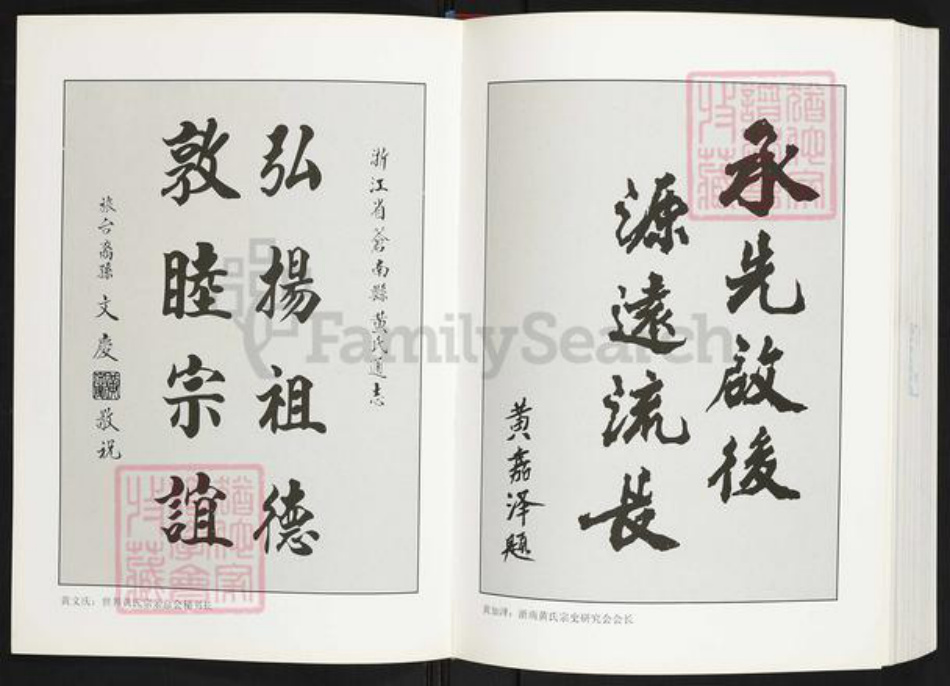 承先啟後
源遠流長
黄嘉泽题
浙江省蒼南縣黄氏通志
弘揚祖德
敦睦宗誼
旅台裔孫 文慶 敬祝
黄文庆：世界黄氏宗亲总会秘书长
浙南黄氏宗史研究会会长
FamilySearch